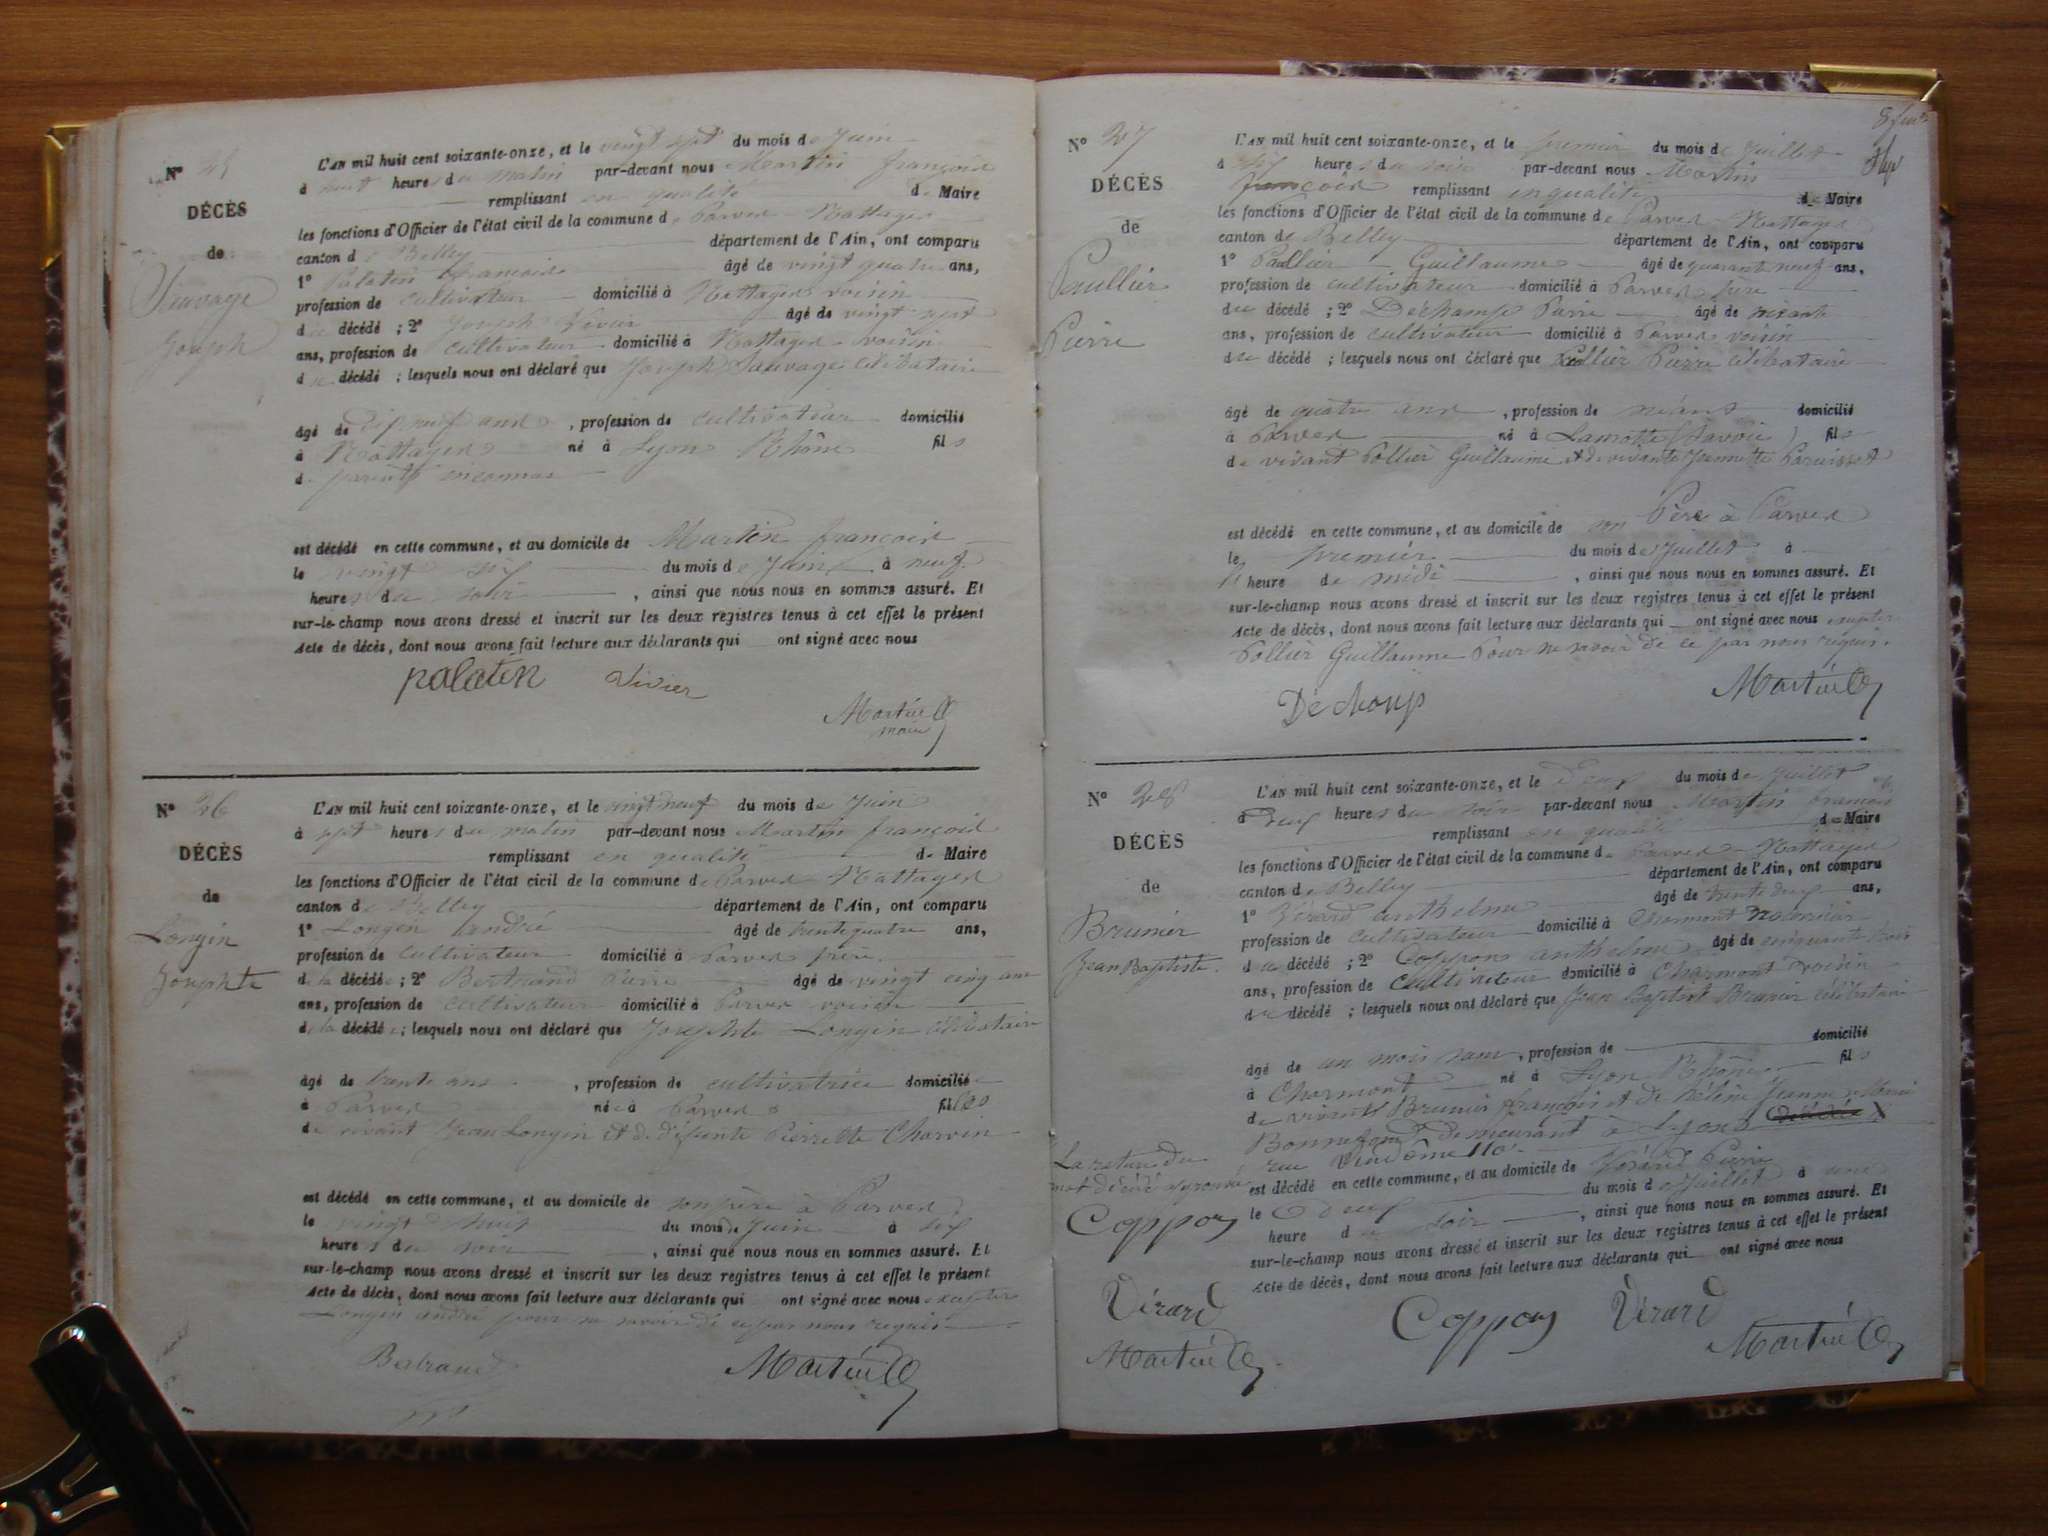 N° 25
DÉCÈS
de
Sauvage
Joseph
L'AN mil huit cent soixante-onze, et le vingt sept du mois de Juin
à neuf heures du matin par-devant nous Martin françois
remplissant en qualité de Maire
les fonctions d'Officier de l'état civil de la commune de Parves Nattages
canton de Belley département de l'Ain, ont comparu
1° Palatin françois âgé de vingt quatre ans,
profession de cultivateur domicilié à Nattages voisin
du décédé ; 2° Joseph Vivier âgé de vingt sept
ans, profession de cultivateur domicilié à Nattages voisin
du décédé ; lesquels nous ont déclaré que Joseph Sauvage célibataire
âgé de dix neuf ans, profession de cultivateur domicilié
à Nattages né à Lyon Rhône fils
de parents inconnus
est décédé en cette commune, et au domicile de Martin françois
le vingt six du mois de Juin à neuf
heures du soir, ainsi que nous nous en sommes assuré. Et
sur-le-champ nous avons dressé et inscrit sur les deux registres tenus à cet effet le présent
Acte de décès, dont nous avons fait lecture aux déclarants qui ont signé avec nous
palatin Vivier
Martin
maire
N° 26
DÉCÈS
de
Longin
Josephte
L'AN mil huit cent soixante-onze, et le vingt neuf du mois de Juin
à sept heures du matin par-devant nous Martin françois
remplissant en qualité de Maire
les fonctions d'Officier de l'état civil de la commune de Parves Nattages
canton de Belley département de l'Ain, ont comparu
1° Longin André âgé de trente quatre ans,
profession de cultivateur domicilié à Parves frère
de la décédée ; 2° Bertrand Pierre âgé de vingt cinq ans
ans, profession de cultivateur domicilié à Parves voisin
de la décédée ; lesquels nous ont déclaré que Josephte Longin célibataire
âgé de trente ans, profession de cultivatrice domiciliée
à Parves née à Parves filles
de vivant Jean Longin et de défunte Pierrette Charvin
est décédé en cette commune, et au domicile de son père à Parves
le vingt huit du mois de Juin à six
heures du soir, ainsi que nous nous en sommes assuré. Et
sur-le-champ nous avons dressé et inscrit sur les deux registres tenus à cet effet le présent
Acte de décès, dont nous avons fait lecture aux déclarants qui ont signé avec nous excepter
Longin andré pour ne savoir de ce par nous requis
Bertrand Martin
N° 27
DÉCÈS
de
Paullier
Pierre
L'AN mil huit cent soixante-onze, et le premier du mois de Juillet
à heures du soir par-devant nous Martin
françois remplissant en qualité de Maire
les fonctions d'Officier de l'état civil de la commune de Parves Nattages
canton de Belley département de l'Ain, ont comparu
1° Pollier Guillaume âgé de quarante neuf ans,
profession de cultivateur domicilié à Parves père
du décédé ; 2° Déchamp Pierre âgé de soixante
ans, profession de cultivateur domicilié à Parves voisin
du décédé ; lesquels nous ont déclaré que Pollier Pierre célibataire
âgé de quatre ans, profession de néant domicilié
à Parves né à Lamotte (Savoie) fils
de vivant Pollier Guillaume et de vivante Jeannette
est décédé en cette commune, et au domicile de son Père à Parves
le premier du mois de Juillet à
heure de midi, ainsi que nous nous en sommes assuré. Et
sur-le-champ nous avons dressé et inscrit sur les deux registres tenus à cet effet le présent
Acte de décès, dont nous avons fait lecture aux déclarants qui ont signé avec nous excepter
Pollier Guillaume Pour ne savoir de ce par nous requis.
Martin
N° 28
DÉCÈS
de
Brunier
Jean Baptiste
L'AN mil huit cent soixante-onze, et le Deux du mois de Juillet
à Deux heures du soir par-devant nous Martin
remplissant en qualité de Maire
les fonctions d'Officier de l'état civil de la commune de Parves Nattages
canton de Belley département de l'Ain, ont comparu
1° Vérard anthelme âgé de trente deux ans,
profession de cultivateur domicilié à Charmont
du décédé ; 2° Coppons anthelme âgé de cinquante trois
ans, profession de cultivateur domicilié à Charmont voisin
du décédé ; lesquels nous ont déclaré que Jean Baptiste Brunier célibataire
âgé de un mois, profession de domicilié
à Charmont né à Lyon Rhône fils
de vivants Brunier françois et de Hélène Jeanne Marie
demeurant à Lyon
rue Vendôme 110
est décédé en cette commune, et au domicile de Vérard Pierre
le Deux du mois de Juillet à une
heure du soir, ainsi que nous nous en sommes assuré. Et
sur-le-champ nous avons dressé et inscrit sur les deux registres tenus à cet effet le présent
Acte de décès, dont nous avons fait lecture aux déclarants qui ont signé avec nous
La rature du
mot décédé
Coppons
Vérard
Martin
Coppons Vérard
Martin